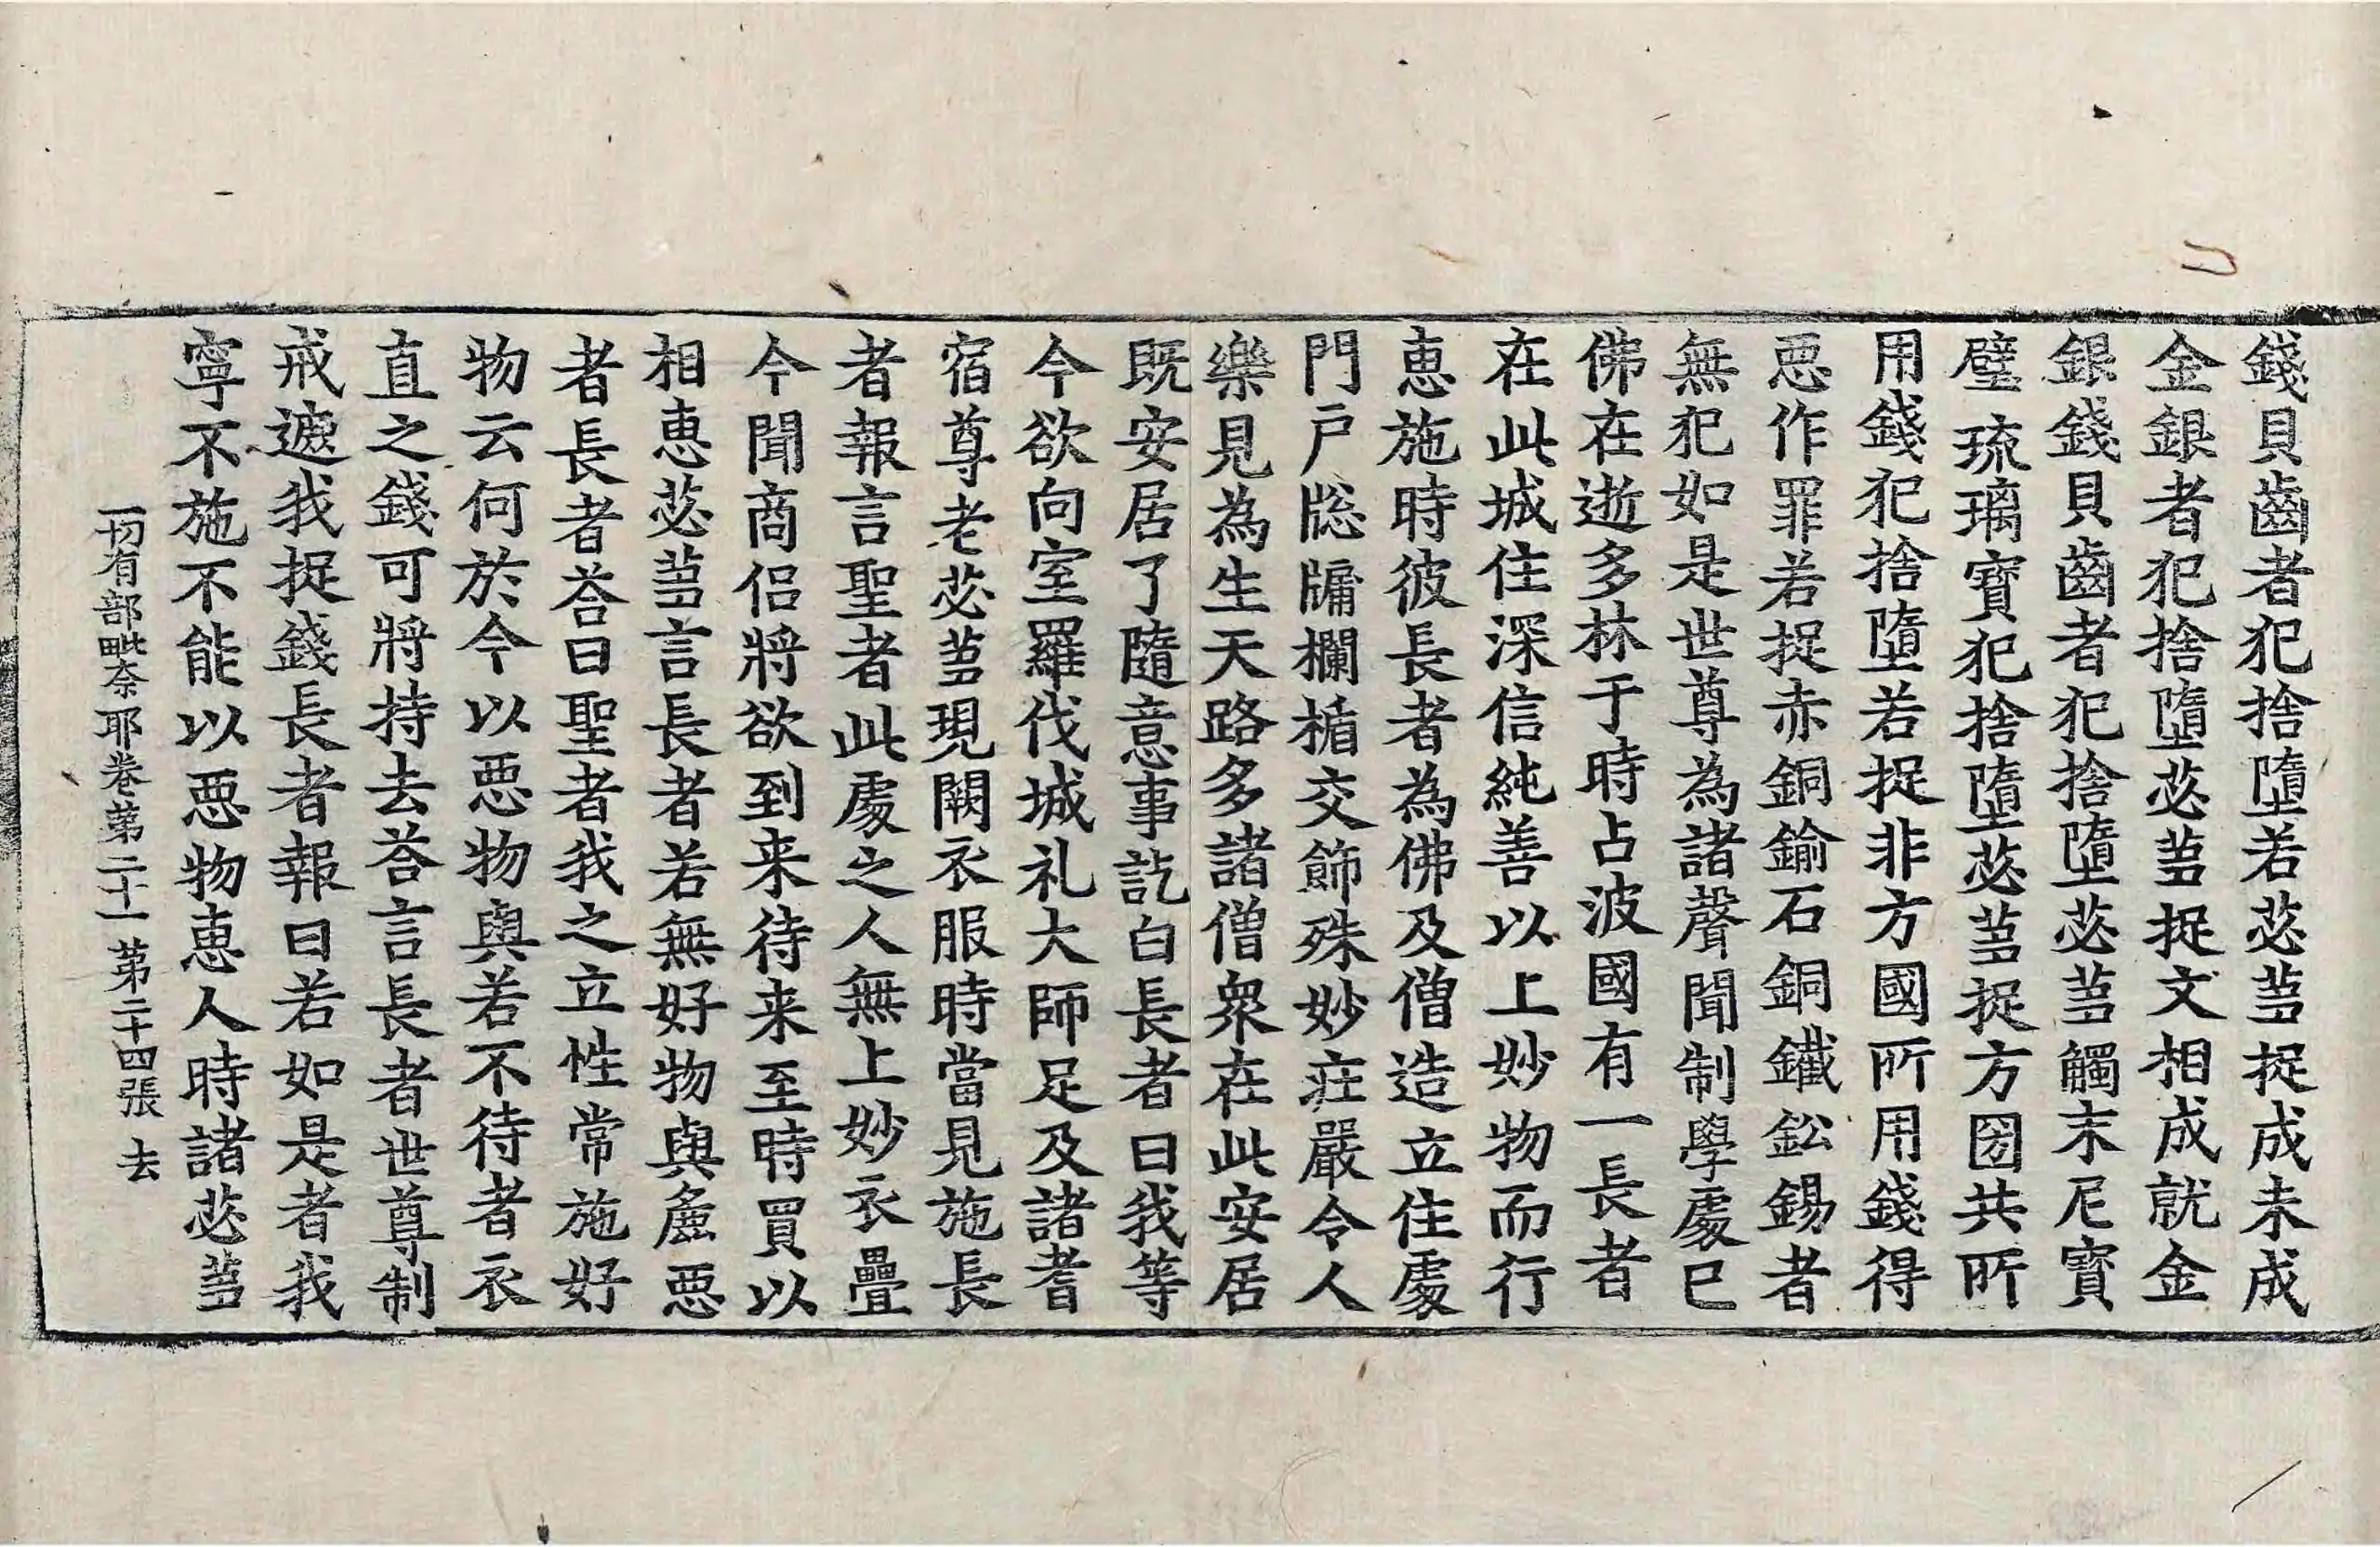 錢貝齒者犯捨墮若苾芻捉成未成
金銀者犯捨墮苾芻捉文相成就金
銀錢貝齒者犯捨墮苾芻觸末尼寶
璧琉璃寶犯捨墮苾芻捉方国共所
用錢犯捨墮若捉非方國所用錢得
恶作罪若捉赤銅鍮石銅鐵鈆錫者
無犯如是世尊為諸聲聞制學處已
佛在逝多林于時占波國有一長者
在此城住深信純善以上妙物而行
恵施時彼長者為佛及僧造立住處
門戸牎牗欄楯交飾殊妙莊嚴令人
樂見為生天路多諸僧衆在此安居
既安居了隨意事訖白長者曰我等
今欲向室羅伐城礼大師足及諸耆
宿尊老苾芻現闕衣服時當見施長
者報言聖者此處之人無上妙衣疊
今聞商侣將欲到来待来至時買以
相恵苾芻言長者若無好物與麁恶
者長者荅曰聖者我之立性常施好
物云何於今以恶物與若不待者衣
直之錢可將持去荅言長者世尊制
戒遮我捉錢長者報曰若如是者我
寧不施不能以恶物恵人時諸苾芻
一切有部毗奈耶卷第二十一 第二十四張 去